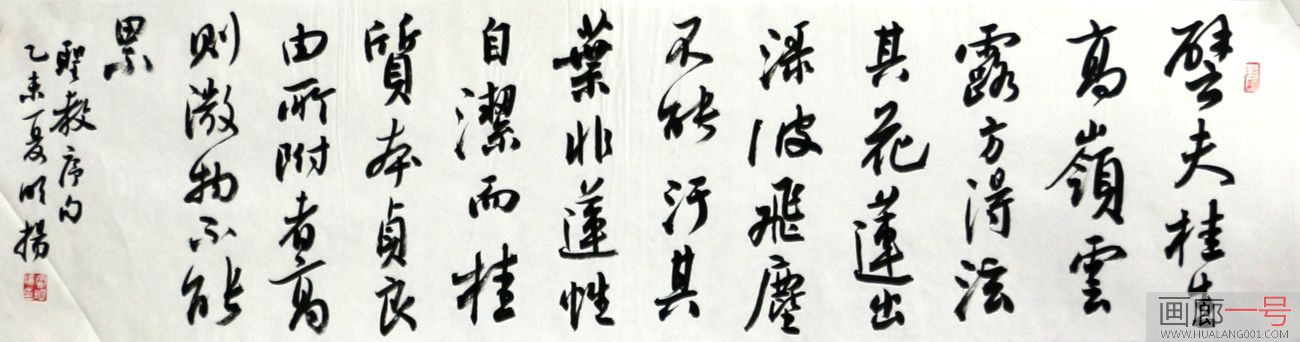 譬夫桂生
高嶺雲
露方得泫
其花蓮出
渌波飛塵
不能汙其
葉非蓮性
自潔而桂
質本貞良
由所附者高
則微物不能
累
聖教序句
乙未夏明揚
画廊一号
WWW.HUALANG001.COM